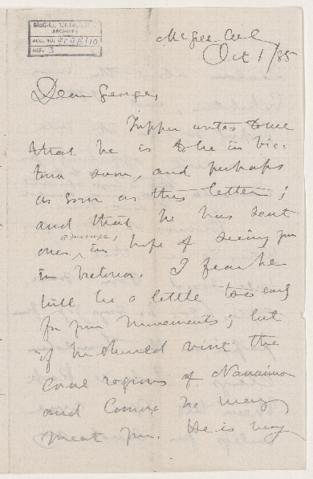 ARCHIVES
McGill Coll
Oct 1/85
Dear George,
Tupper writes to me
that he is to be in Vic-
toria soon, and perhaps
as soon as this letter;
and that he has sent
ones, in hope of seeing you
in Victoria. I fear he
will be a little too early
for your movements; but
if he should visit the
Coal regions of Nanaimo
and Comox he may
meet you. He is very